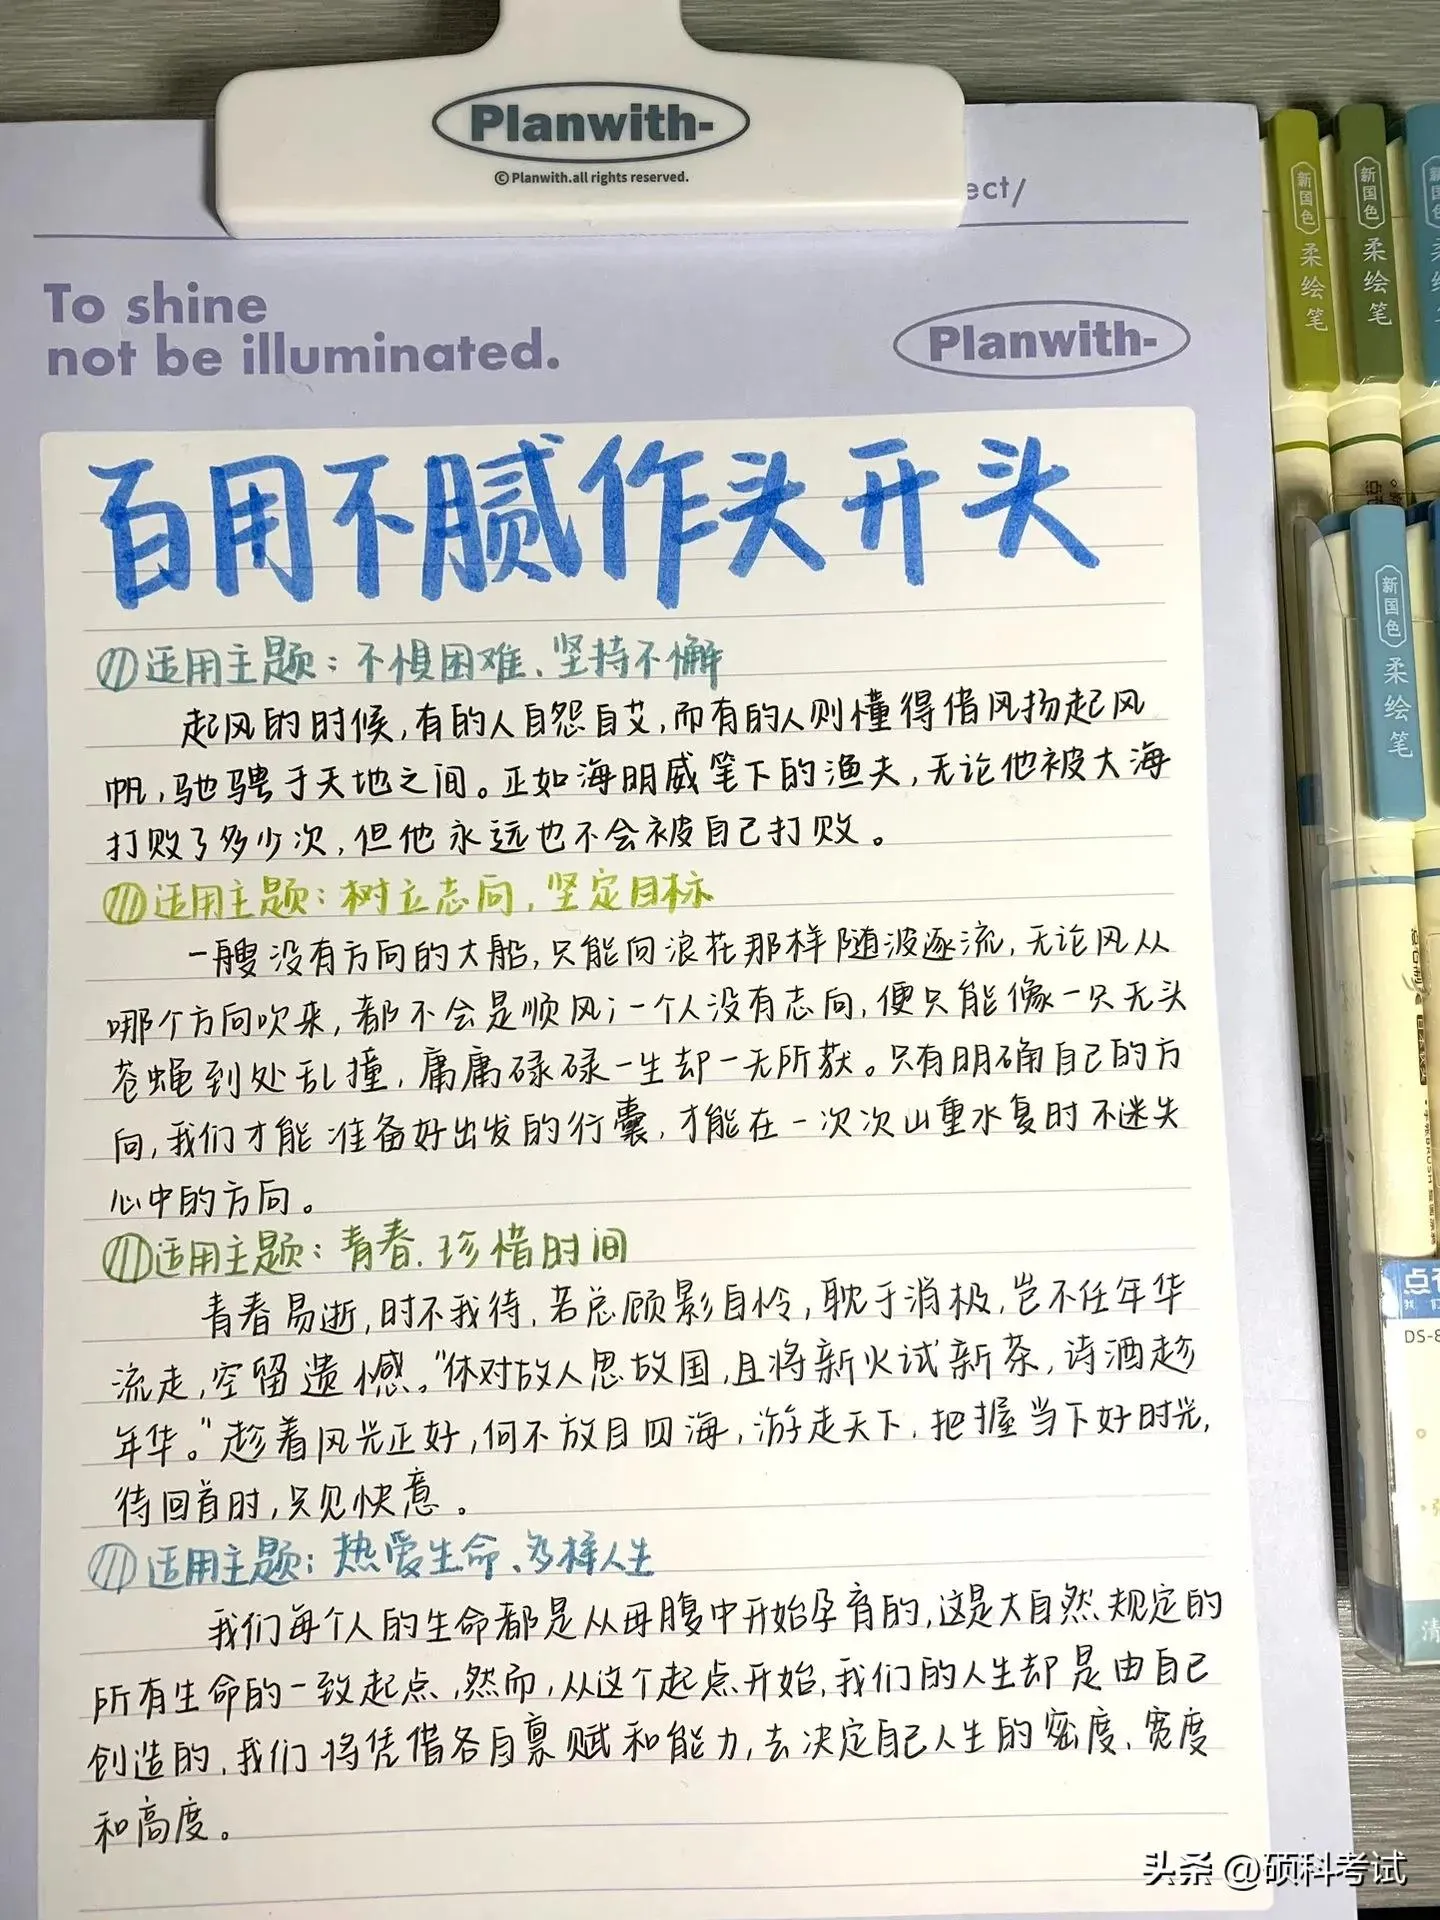 Planwith-
© Planwith.all rights reserved.
ect/
To shine
not be illuminated.
Planwith-
百用不腻作头开头
适用主题：不惧困难、坚持不懈
起风的时候，有的人自怨自艾，而有的人则懂得借风扬起风
帆，驰骋于天地之间。正如海明威笔下的渔夫，无论他被大海
打败了多少次，但他永远也不会被自己打败。
适用主题：树立志向，坚定目标
一艘没有方向的大船，只能向浪花那样随波逐流，无论风从
哪个方向吹来，都不会是顺风；一个人没有志向，便只能像一只无头
苍蝇到处乱撞，庸庸碌碌一生却一无所获。只有明确自己的方
向，我们才能准备好出发的行囊，才能在一次次山重水复时不迷失
心中的方向。
适用主题：青春、珍惜时间
青春易逝，时不我待，若总顾影自怜，耽于消极，岂不任年华
流走，空留遗憾。"休对故人思故国，且将新火试新茶，诗酒趁
年华。"趁着风光正好，何不放目四海，游走天下，把握当下好时光，
待回首时，只见快意。
适用主题：热爱生命、多样人生
我们每个人的生命都是从母腹中开始孕育的，这是大自然规定的
所有生命的一致起点，然而，从这个起点开始，我们的人生却是由自己
创造的，我们将凭借各自禀赋和能力，去决定自己人生的密度、宽度
和高度。
新国色 柔绘笔
新国色 柔绘笔
新国色 柔绘笔
DS-8
头条 @硕科考试